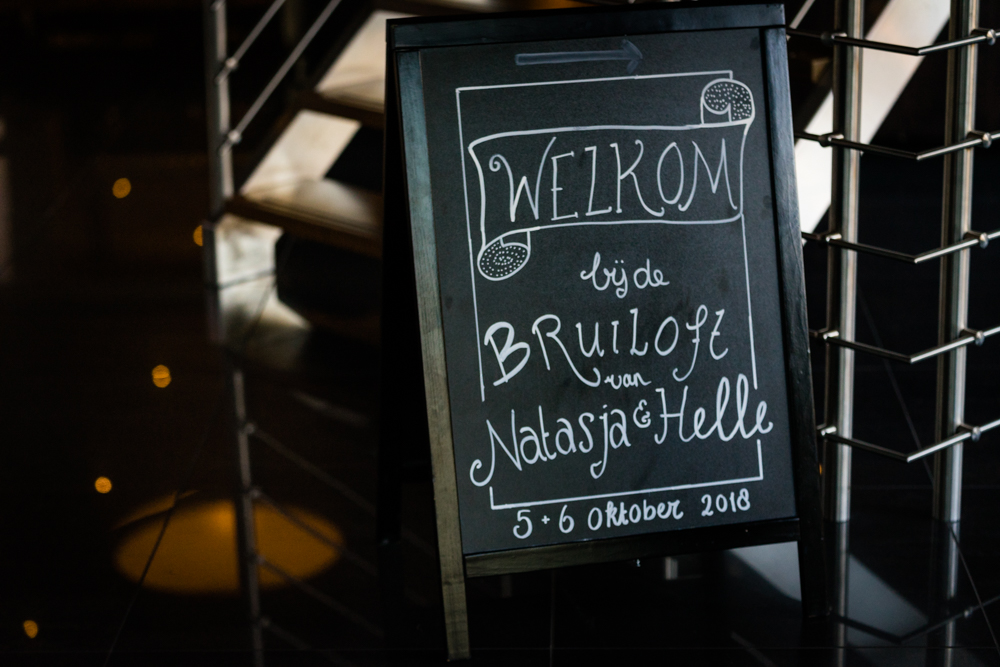 WELKOM
bij de
BRUILOFT
van
Natasja & Helle
5 + 6 Oktober 2018